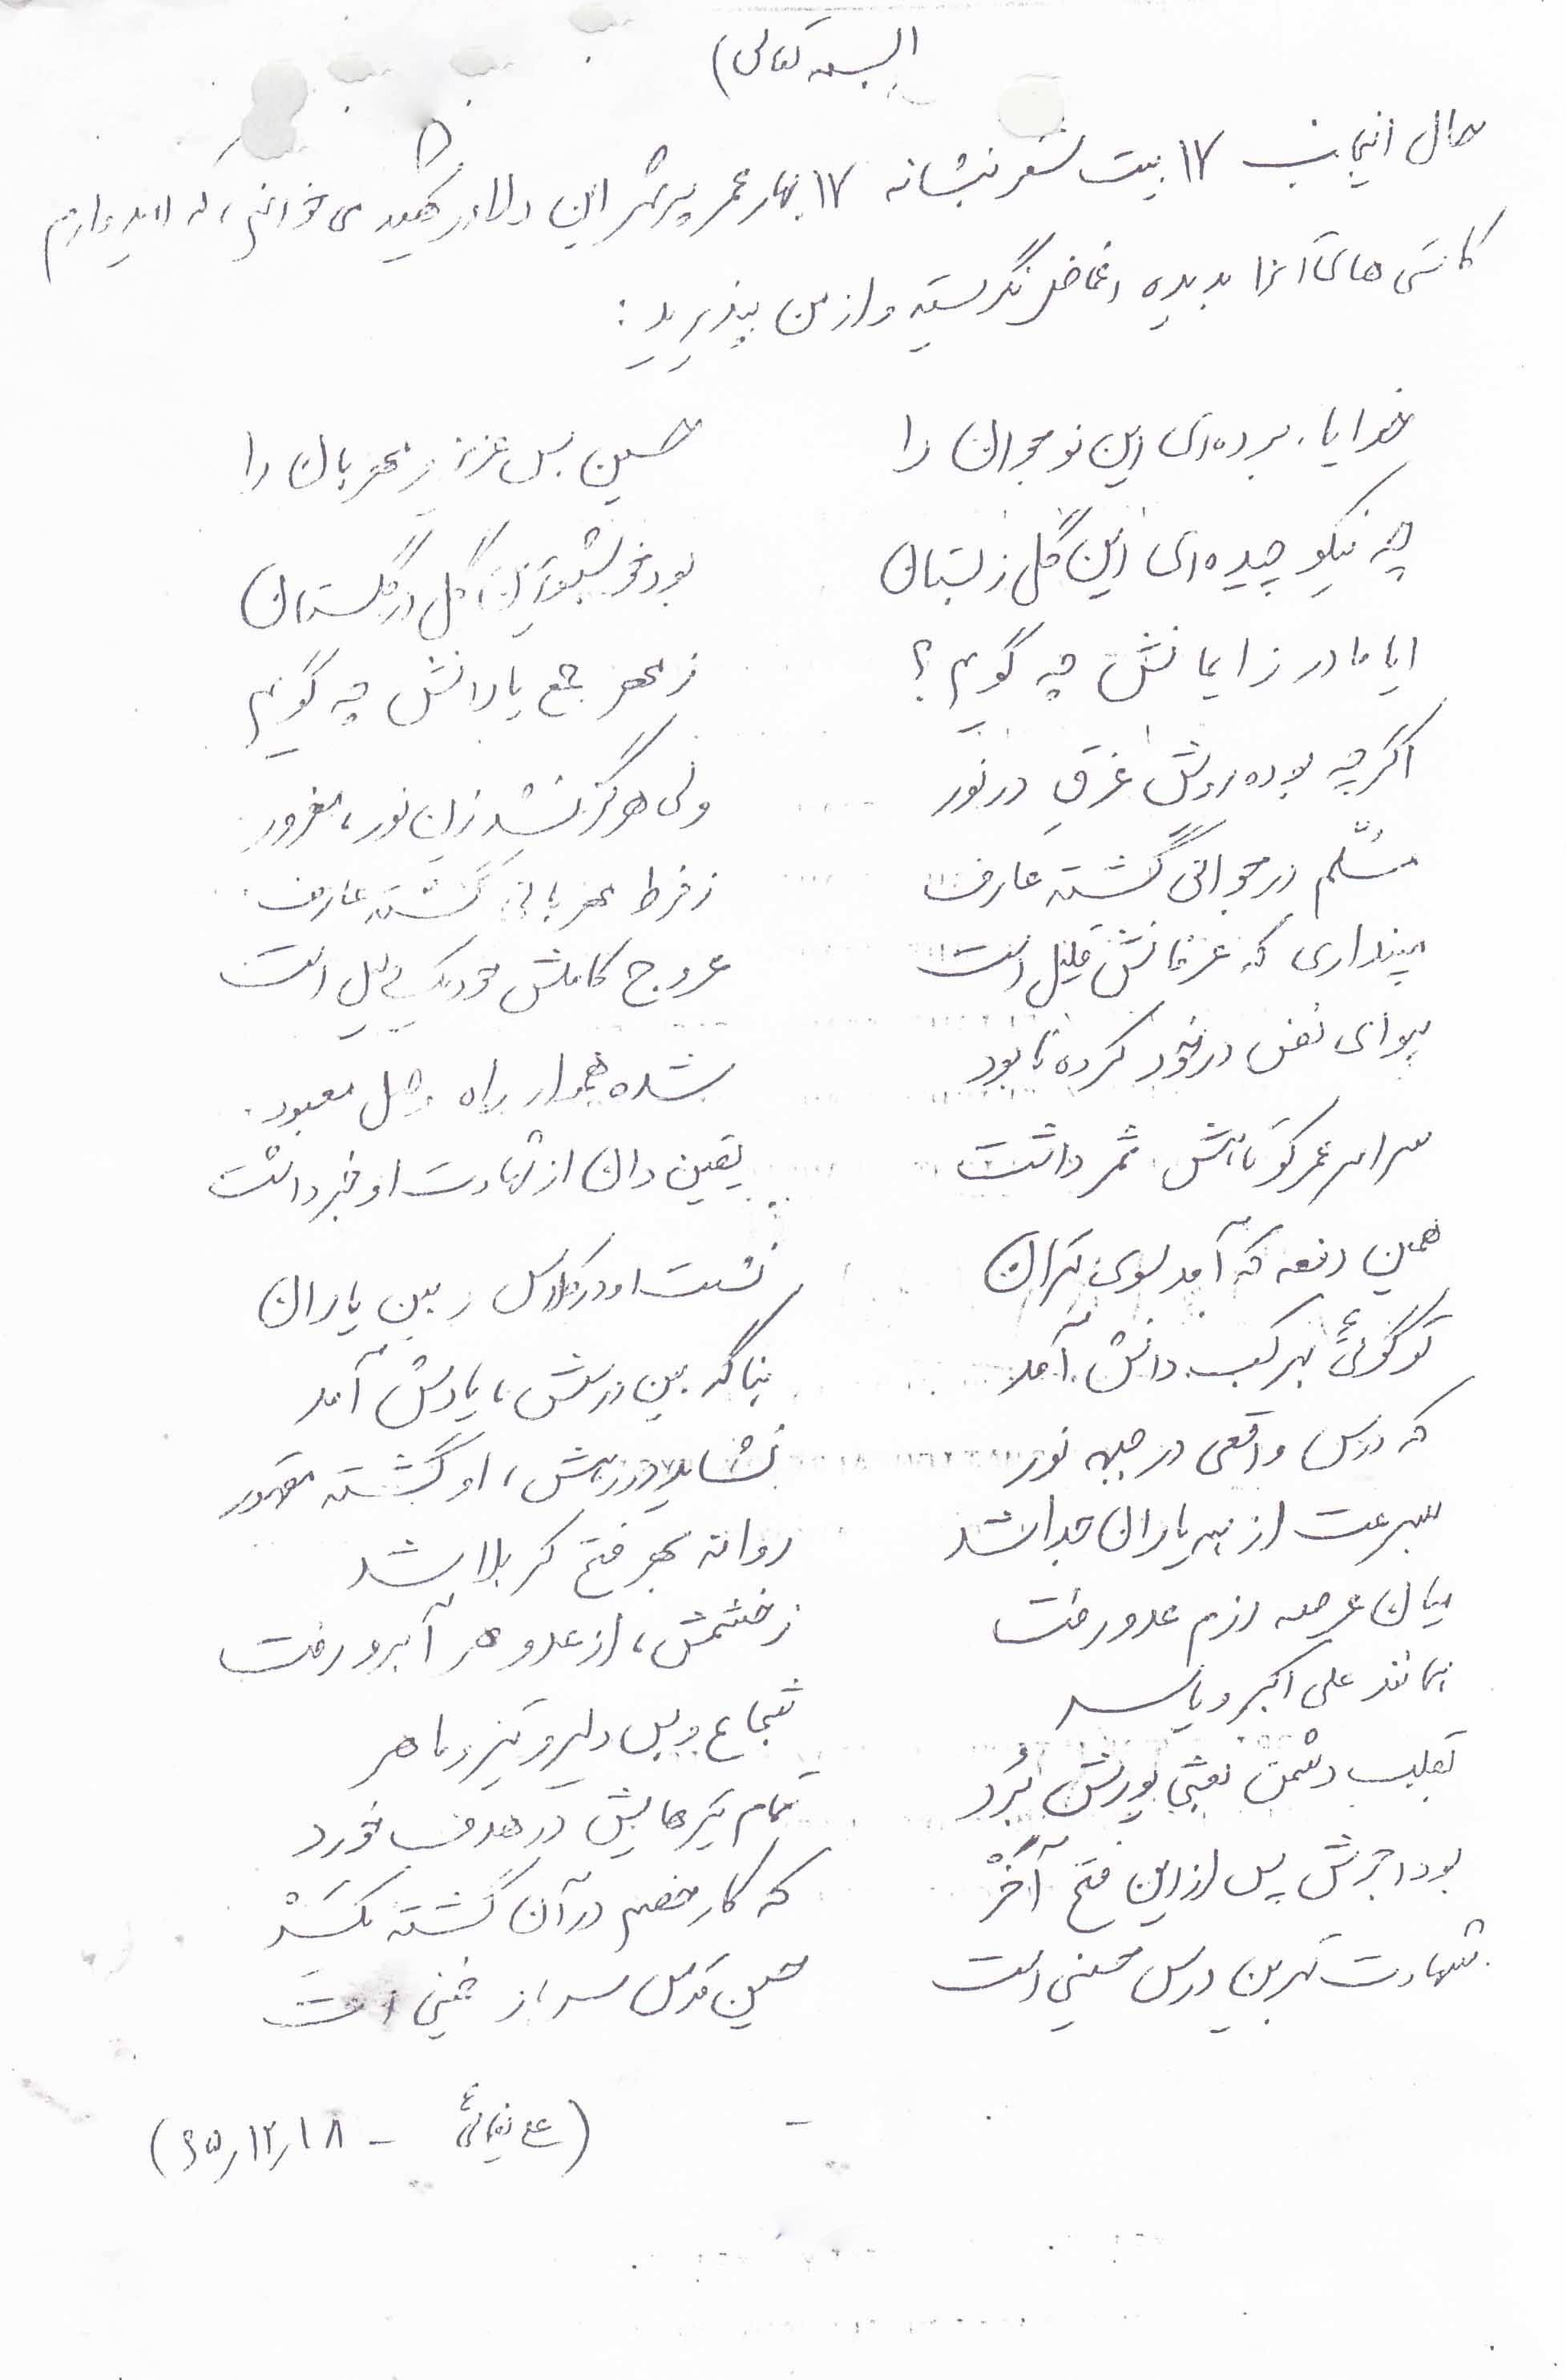 (بسمه تعالی)
حال اینجانب ۱۷ بیت شعر بنشانه ۱۷ بهار عمر پر ثمر این دلاور شهید می خوانم، که امیدوارم
کاستی های آنرا بدیده اغماض نگریسته و از من بپذیرید:
خدایا، برده‌ای این نوجوان را حسین بس عزیز و مهربان را
چه نیکو چیده‌ای این گل ز بستان بود خوشبوترین گل در گلستان
ایا مادر ز ایمانش چه گویم؟ ز مهر جمع یارانش چه گویم
اگر چه بوده رویش غرق در نور ولی هرگز نشد زان نور، مغرور
مسُلّم در جوانی گشته عارف ز فرط مهربانی گشته عارف
مپنداری که عرفانش قلیل است عروج کاملش خود یک دلیل است
هوای نفس در خود کرده نابود شده هموار راه وصل معبود.
سراسر عمر کوتاهش ثمر داشت یقین دان از شهادت او خبر داشت
همین دفعه که آمد سوی تهران نشست او در کلاس و بین یاران
تو گوئی بهر کسب دانش آمد بناگه بین درسش، یادش آمد
که درس واقعی در جبهه نور نشاید ورزش، او گشته مقهور
بسرعت از بر یاران جدا شد روانه بهر فتح کربلا شد
میان عرصه رزم عدو رفت ز خشمش، از عدو هر آبرو رفت
بمانند علی اکبر و یاسر شجاع و بس دلیر و تیز و ماهر
بقلب دشمن بعثی یورش بُرد تمام تیرهایش در هدف خورد
بود اجرش پس از این فتح آخَرْ که کار خصم در آن گشته یکسَرْ
شهادت بهرین درس حسینی است حسین قدس سرباز خمینی است
(ع نعمائی - ۶۵٫۱۲٫۱۸)